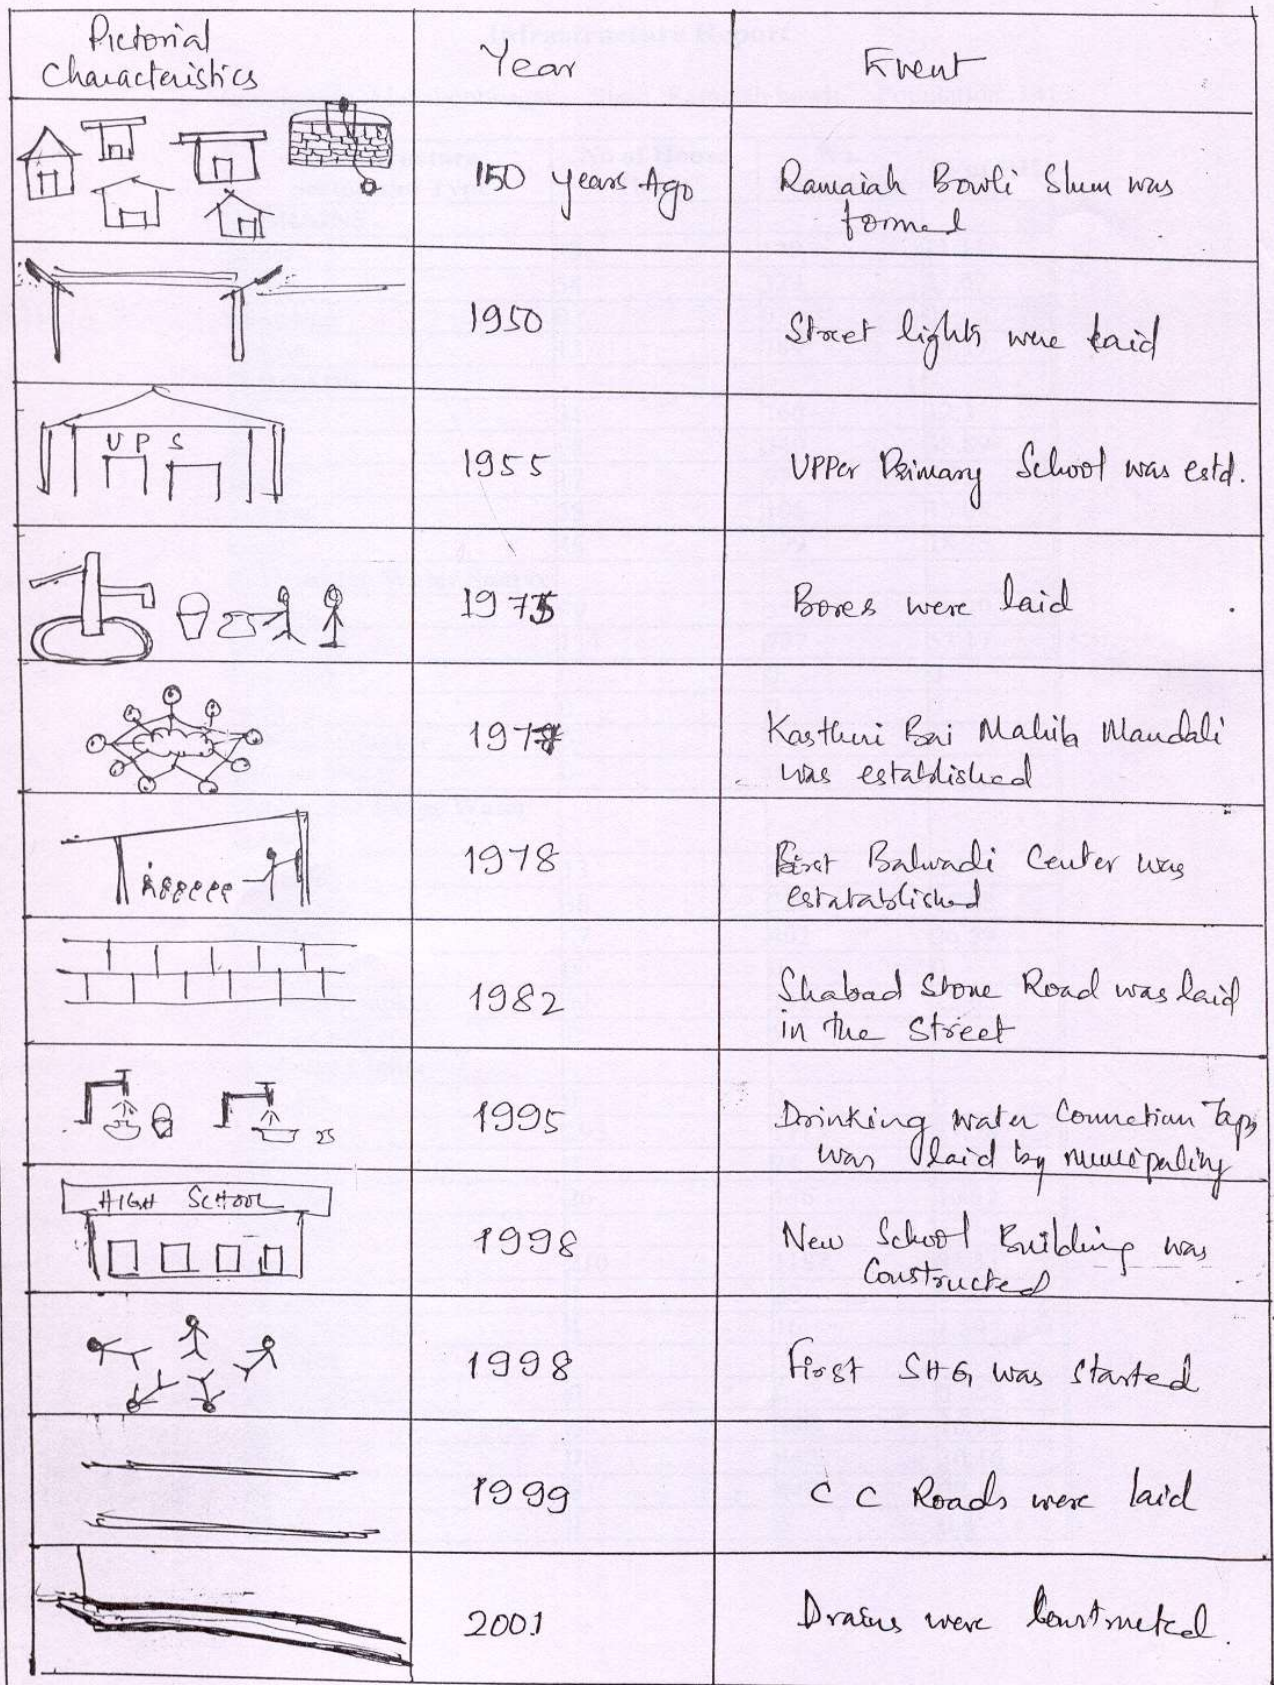 Pictorial
Characteristics
Year
Event
150 years Ago
Ramaiah Bowli Slum was
formed
1950
Street lights were laid
U P S
1955
UPPer Primary School was estd.
1975
Bores were laid
Kasthuri Bai Mahila Mandali
was established
1978
First Balwadi Center was
estatablished
1982
Shabad Stone Road was laid
in the Street
1995
Drinking water Connection Taps
was laid by municipality
HIGH SCHOOL
1998
New School Building was
Constructed
1998
First SHG was Started
1999
C C Roads were laid
2001
Drains were Constructed.